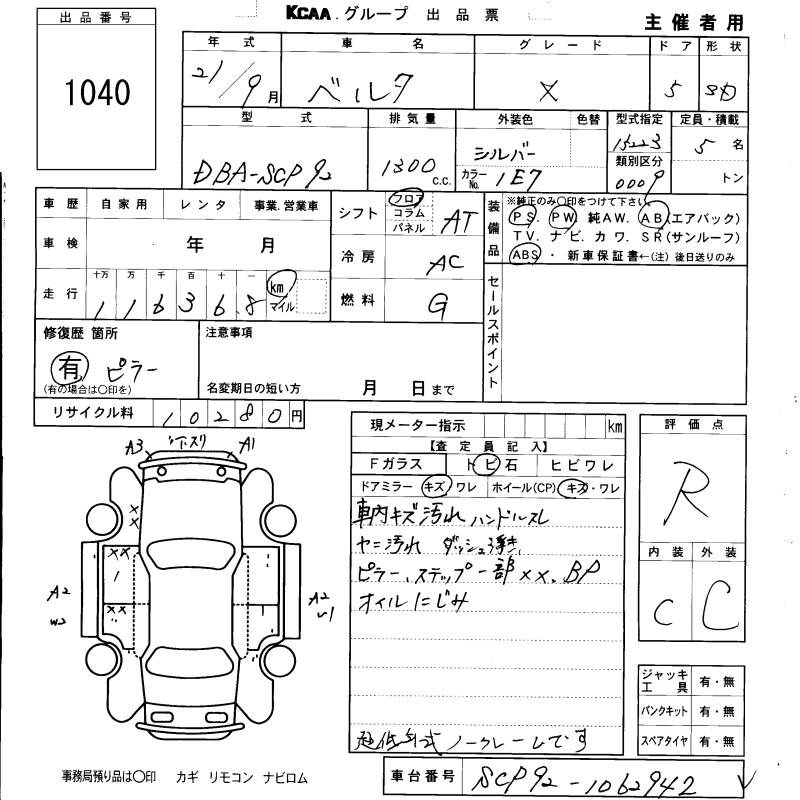 KCAA.グループ 出品票
主催者用
出品番号
1040
年式 車名 グレード ドア 形状
21/9月 ベルタ X 5
型式 排気量 外装色 色替 型式指定 定員・積載
DBA-SCP92 1300c.c. シルバー カラーNo. 1E7 15223 5名
類別区分 0009 トン
車歴 自家用 レンタ 事業.営業車
車検 年 月
走行 十万 万 千 百 十 一
11636.8 km マイル
シフト フロア コラム パネル AT
冷房 AC
燃料 G
装備品 ※純正のみ○印をつけて下さい
PS. PW 純AW. AB(エアバック)
TV. ナビ. カワ. SR(サンルーフ)
ABS・新車保証書←(注)後日送りのみ
セールスポイント
修復歴 箇所
有 ピラー
(有の場合は○印を)
注意事項
名変期日の短い方 月 日まで
リサイクル料 10280円
現メーター指示 km
【査定員記入】
Fガラス トビ石 ヒビワレ
ドアミラー キズ/ワレ ホイール(CP) キズ・ワレ
車内キズ汚れ ハンドルスレ
ヤニ汚れ ダッシュ浮き
ピラー、ステップ一部××.BP
オイルにじみ
超低年式 ノークレームです
評価点
R
内装 外装
C C
ジャッキ工具 有・無
パンクキット 有・無
スペアタイヤ 有・無
A3 A1
××
××
A2 W2
A2
事務局預り品は○印 カギ リモコン ナビロム
車台番号 SCP92-1062942